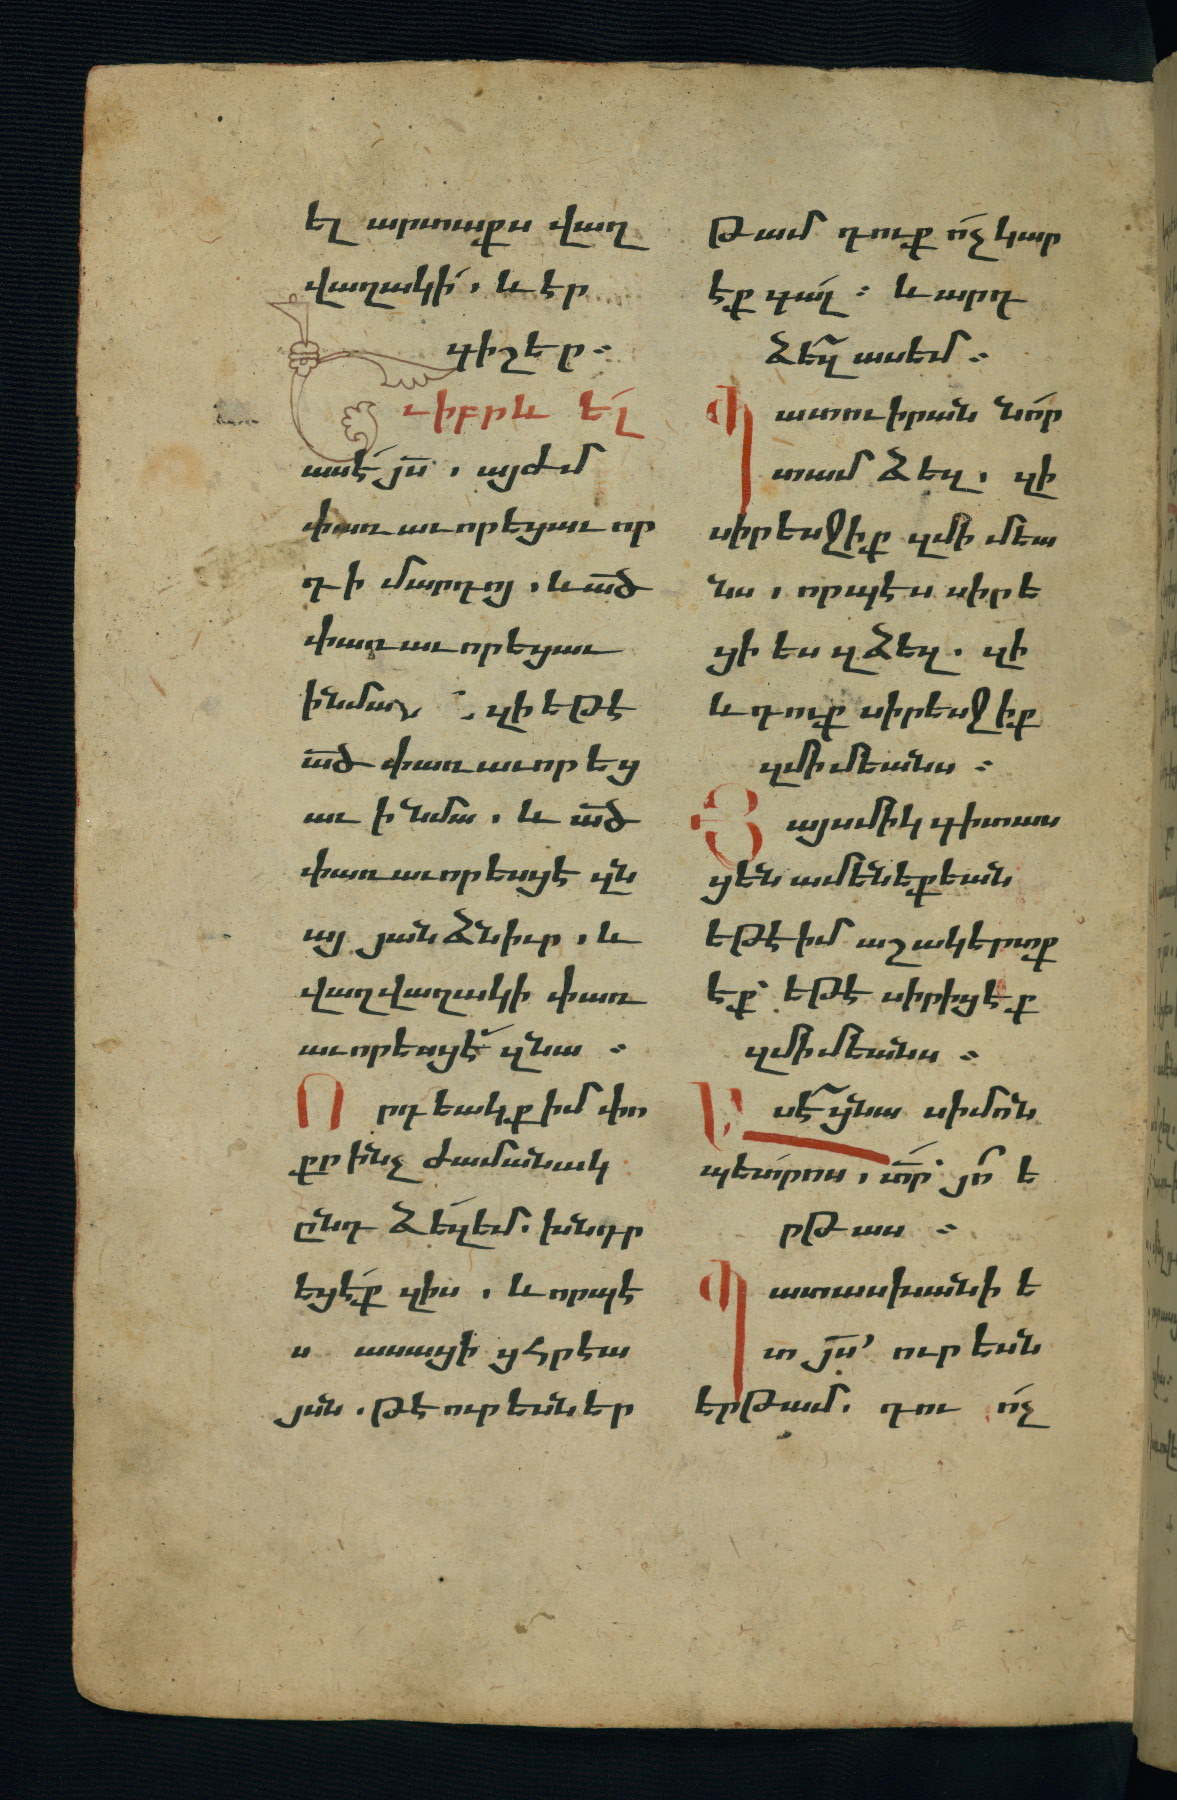 էլ արտաքս վաղ
վաղակի՛. և էր
գիշեր։
Եւ իբրև ել
ասէ յս. այժմ
փառաւորեցաւ որ
դի մարդոյ. և ած
փառաւորեցաւ
ի նմա. զի եթէ
ած փառաւորեց
աւ ի նմա. և ած
փառաւորեսցէ զն
այ յանձնիւր. և
վաղվաղակի փառ
աւորեսցէ զնա ։
Որդեակք իմ փո
քր ինչ ժամանակ
ընդ ձեզ եմ. խնդր
եցէք զիս. և որպէ
ս ասացի ցհրէա
յսն. թէ ուր եսն եր
թամ դուք ո՛չ կար
էք գալ ։ և արդ
ձեզ ասեմ ։
Պատուիրան նոր
տամ ձեզ. զի
սիրեսջիք զմիմեա
նս. որպէս սիրե
ցի ես զձեզ. զի
և դուք սիրեսջիք
զմիմեանս ։
Յայսմիկ գիտաս
ցեն ամենեքեան
եթէ իմ աշակերտք
էք՝ եթէ սիրիցէք
զմիմեանս ։
Ասէ ցնա սիմոն
պետրոս. տր՝ յո՞ ե
րթաս ։
Պատասխանի ե
տ յս՝ ուր եսն
երթամ. դու ո՛չ